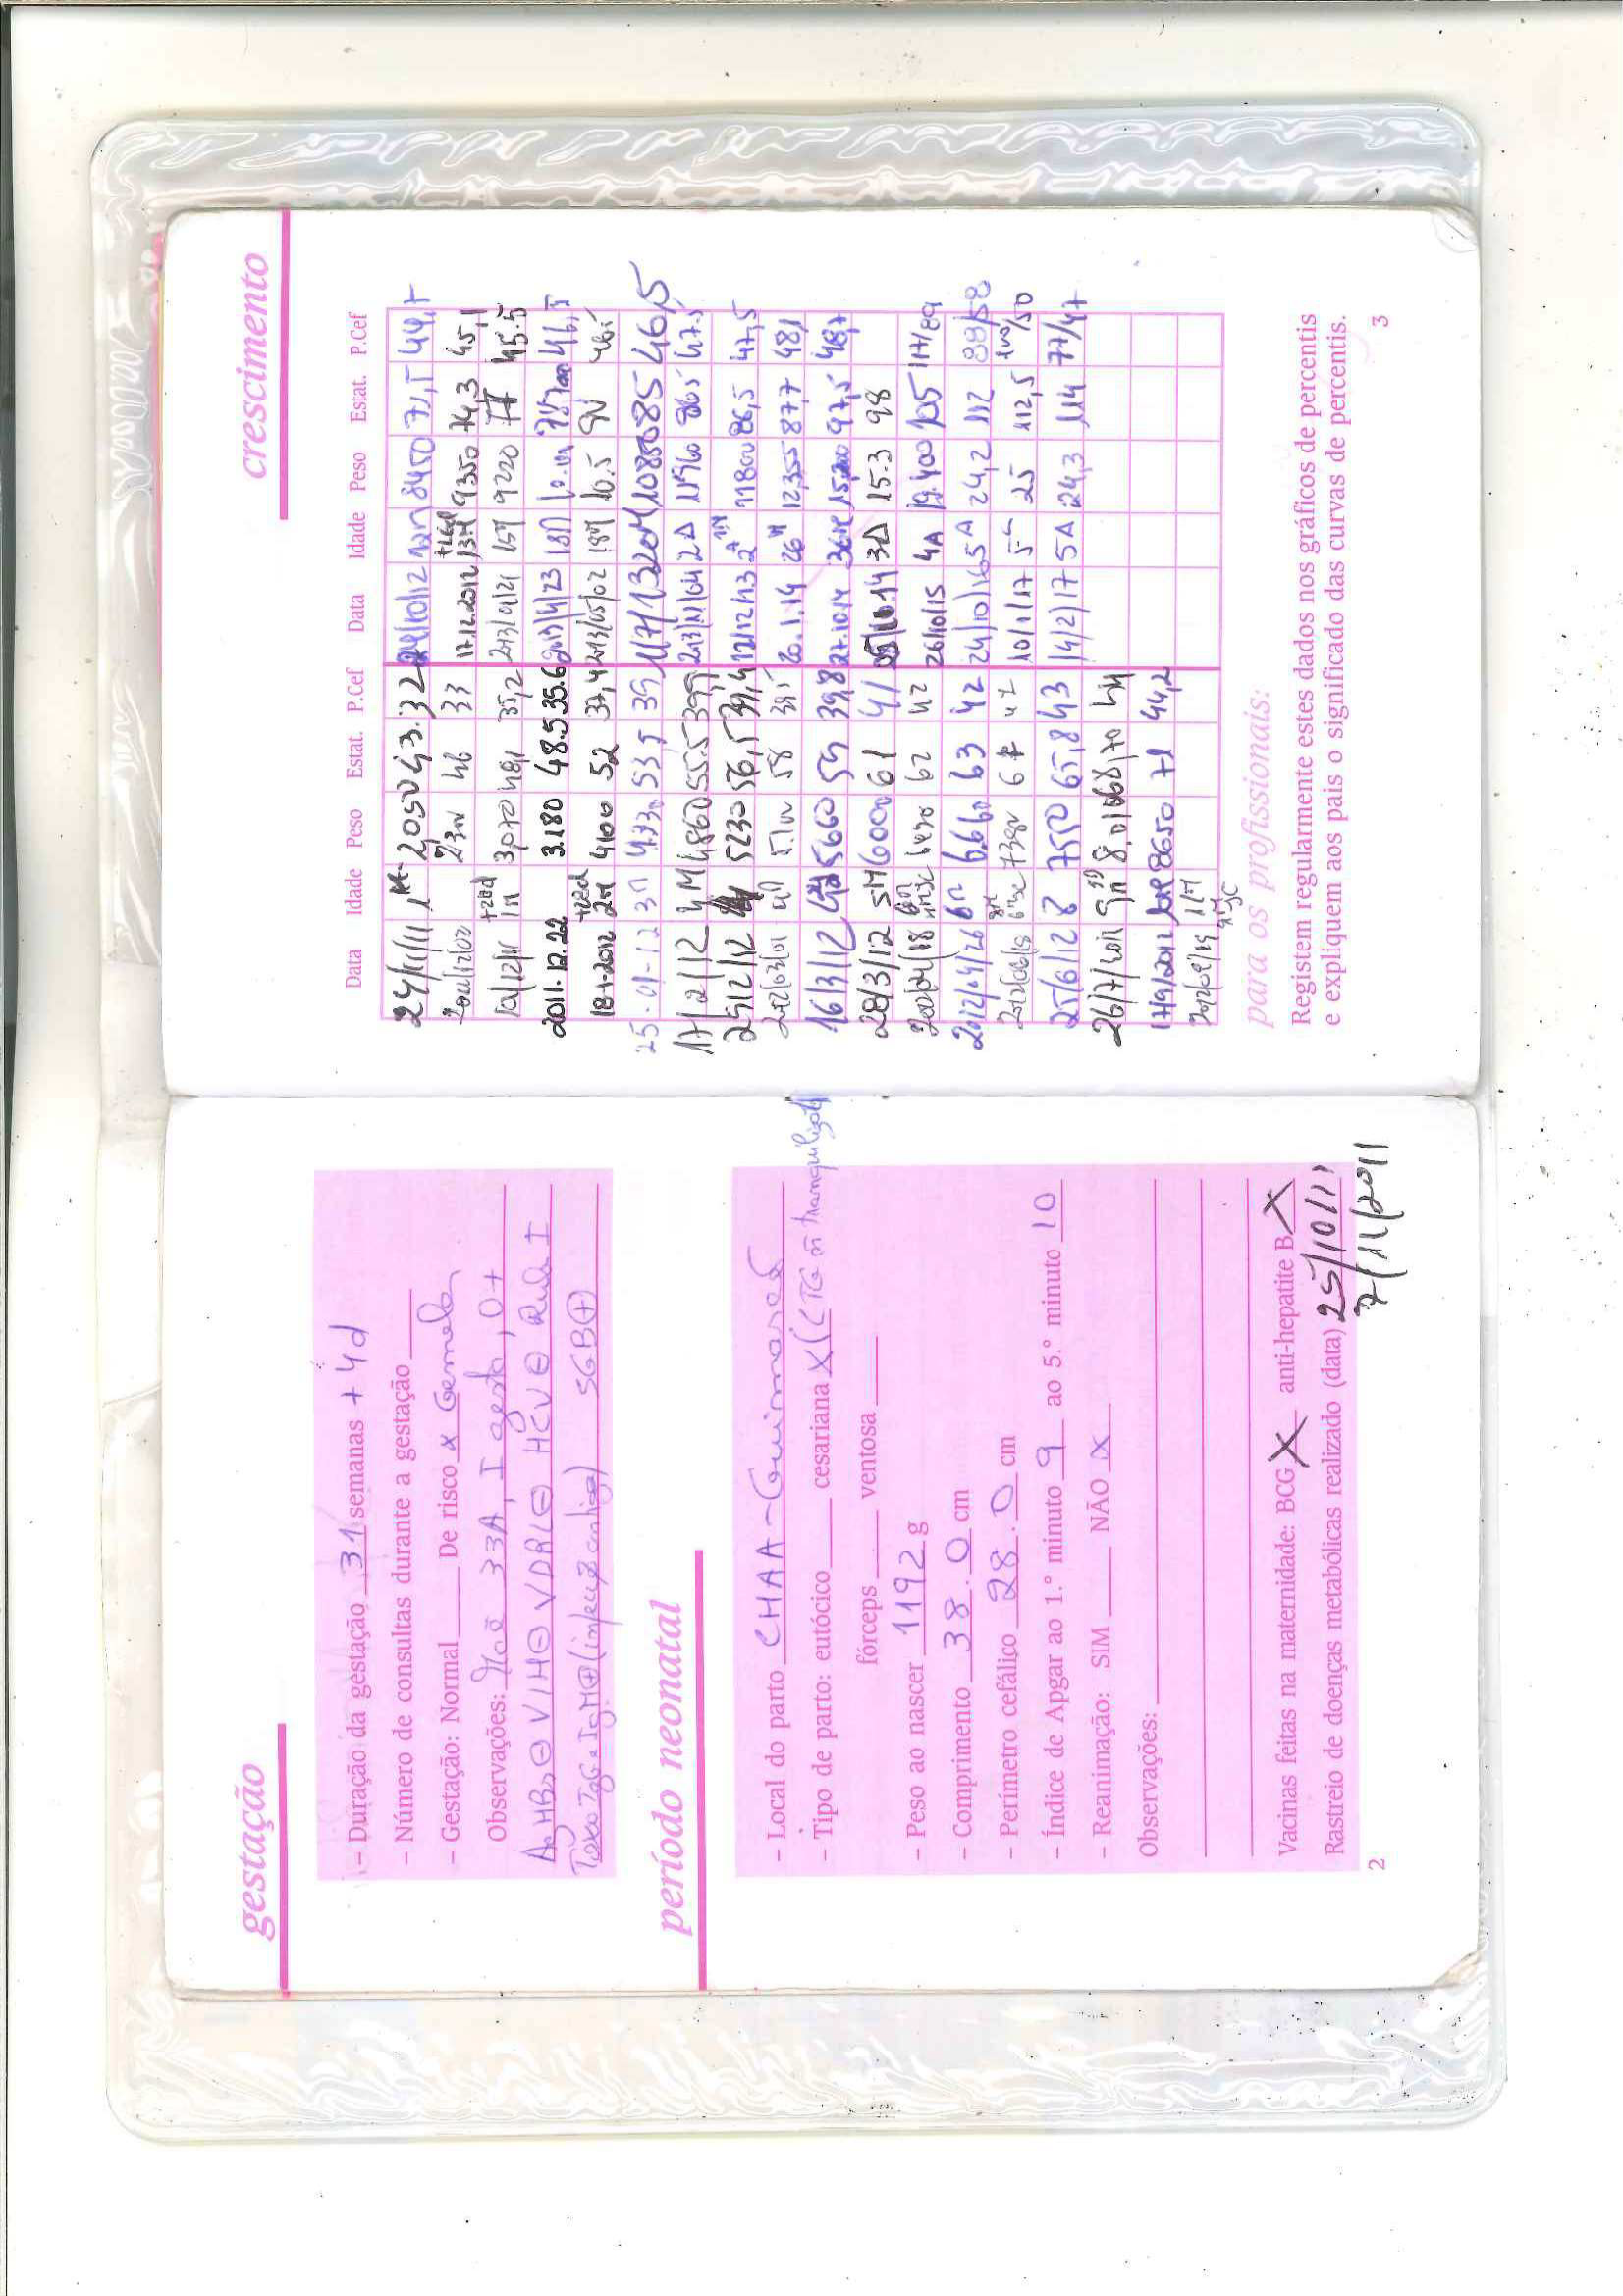 gestação
– Duração da gestação 31 semanas + 4d
– Número de consultas durante a gestação
– Gestação: Normal De risco x Gemelar
Observações: Mãe 33A, I gesta, O+
AgHBs ⊖ VIH ⊖ VDRL ⊖ HCV ⊖ Rub I
Toxo IgG e IgM ⊕ (infecção antiga) SGB ⊕
período neonatal
– Local do parto CHAA - Guimarães
– Tipo de parto: eutócico cesariana X (CTG ñ tranquilizador
fórceps ventosa
– Peso ao nascer 1192 g
– Comprimento 38.0 cm
– Perímetro cefálico 28.0 cm
– Índice de Apgar ao 1.º minuto 9 ao 5.º minuto 10
– Reanimação: SIM NÃO x
Observações:
Vacinas feitas na maternidade: BCG X anti-hepatite B X
Rastreio de doenças metabólicas realizado (data) 25/10/11
7/11/2011
2
crescimento
Data Idade Peso Estat. P.Cef Data Idade Peso Estat. P.Cef
24/11/11 1 M 2050 43. 32 24/10/12 12M 8450 71,5 44,5
46 33 17.12.2012 13M 9350 74,3 45,1
1M 3070 48,1 35,2 2013/01/21 15M 9220 77 45.5
2011.12.22 3.180 48.5 35.6 2013/4/23 18M 46,5
18-1-2012 2M 4100 52 37,4 2013/05/02 18M 10.5 46.5
25-01-12 3M 4730 53 5 39 1/7/13 20M 10850 85 46,5
17/2/12 4M 4860 55.5 39,5 2A 11560 86 5 47.5
29/2/12 5230 56,5 39,4 12/12/13 11800 86,5 47,5
2012/03/01 4M 58 39,5 20.1.14 26M 12,355 87,7 48,1
16/3/12 5660 59 39,8 27.10.14 36M 15,200 97,5 48,7
28/3/12 5M 6000 61 41 3A 15.3 98
62 42 26/10/15 4A 19.400 105 117/89
2012/4/26 6M 6.660 63 42 24/10/16 5A 24,2 112 88/58
7380 67 42 10/1/17 5A 25 112,5 100/50
25/6/12 8 7550 65,8 43 14/2/17 5A 24,3 114 77/47
26/7/2012 9M 8,010 68,70 44
17/9/2012 8650 71 44,2
11M
para os profissionais:
Registem regularmente estes dados nos gráficos de percentis
e expliquem aos pais o significado das curvas de percentis.
3